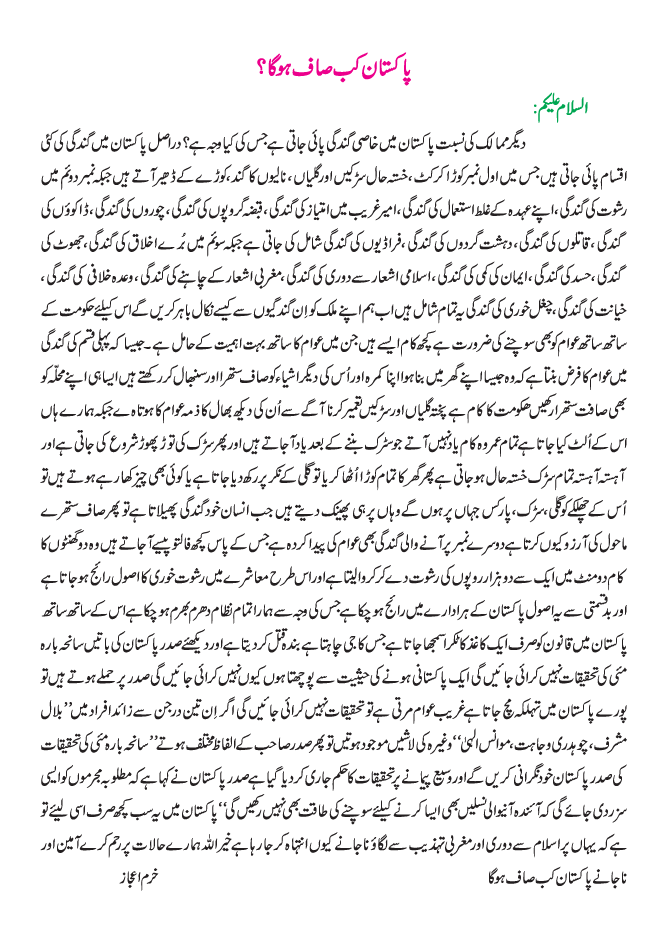 پاکستان کب صاف ہوگا؟
السلام علیکم:
دیگر ممالک کی نسبت پاکستان میں خاصی گندگی پائی جاتی ہے جس کی کیا وجہ ہے؟ دراصل پاکستان میں گندگی کی کئی
اقسام پائی جاتی ہیں جس میں اول نمبر کوڑا کرکٹ، خستہ حال سڑکیں اور گلیاں، نالیوں کا گند، کوڑے کے ڈھیر آتے ہیں جبکہ نمبر دوئم میں
رشوت کی گندگی، اپنے عہدہ کے غلط استعمال کی گندگی، امیر غریب میں امتیاز کی گندگی، قبضہ گروپوں کی گندگی، چوروں کی گندگی، ڈاکوؤں کی
گندگی، قاتلوں کی گندگی، دہشت گردوں کی گندگی، فراڈیوں کی گندگی شامل کی جاتی ہے جبکہ سوئم میں بُرے اخلاق کی گندگی، جھوٹ کی
گندگی، حسد کی گندگی، ایمان کی کمی کی گندگی، اسلامی اشعار سے دوری کی گندگی، مغربی اشعار کے چاہنے کی گندگی، وعدہ خلافی کی گندگی،
خیانت کی گندگی، چغل خوری کی گندگی یہ تمام شامل ہیں اب ہم اپنے ملک کو اِن گندگیوں سے کیسے نکال باہر کریں گے اس کیلئے حکومت کے
ساتھ ساتھ عوام کو بھی سوچنے کی ضرورت ہے کچھ کام ایسے ہیں جن میں عوام کا ساتھ بہت اہمیت کے حامل ہے۔ جیسا کہ پہلی قسم کی گندگی
میں عوام کا فرض بنتا ہے کہ وہ جیسا اپنے گھر میں بنا ہوا اپنا کمرہ اور اُس کی دیگر اشیاء کو صاف ستھرا اور سنبھال کر رکھتے ہیں ایسا ہی اپنے محلّہ کو
بھی صافت ستھرا رکھیں حکومت کا کام ہے پختہ گلیاں اور سڑکیں تعمیر کرنا آگے سے اُن کی دیکھ بھال کا ذمہ عوام کا ہوتا ہے جبکہ ہمارے ہاں
اس کے اُلٹ کیا جاتا ہے تمام عمر وہ کام یاد نہیں آتے جو سڑک بننے کے بعد یاد آجاتے ہیں اور پھر سڑک کی توڑ پھوڑ شروع کی جاتی ہے اور
آہستہ آہستہ تمام سڑک خستہ حال ہو جاتی ہے پھر گھر کا تمام کوڑا اُٹھا کر یا تو گلی کے نکر پر رکھ دیا جاتا ہے یا کوئی بھی چیز کھا رہے ہوتے ہیں تو
اُس کے چھلکے کو گلی، سڑک، پارکس جہاں پر ہوں گے وہاں پر ہی پھینک دیتے ہیں جب انسان خود گندگی پھیلاتا ہے تو پھر صاف ستھرے
ماحول کی آرزو کیوں کرتا ہے دوسرے نمبر پر آنے والی گندگی بھی عوام کی پیدا کردہ ہے جس کے پاس کچھ فالتو پیسے آجاتے ہیں وہ دو گھنٹوں کا
کام دو منٹ میں ایک سے دو ہزار روپوں کی رشوت دے کر کروا لیتا ہے اور اس طرح معاشرے میں رشوت خوری کا اصول رائج ہو جاتا ہے
اور بدقسمتی سے یہ اصول پاکستان کے ہر ادارے میں رائج ہو چکا ہے جس کی وجہ سے ہمارا تمام نظام دھرم بھرم ہو چکا ہے اس کے ساتھ ساتھ
پاکستان میں قانون کو صرف ایک کاغذ کا ٹکرا سمجھا جاتا ہے جس کا جی چاہتا ہے بندہ قتل کر دیتا ہے اور دیکھئے صدر پاکستان کی باتیں سانحہ بارہ
مئی کی تحقیقات نہیں کرائی جائیں گی ایک پاکستانی ہونے کی حیثیت سے پوچھتا ہوں کیوں نہیں کرائی جائیں گی صدر پر حملے ہوتے ہیں تو
پورے پاکستان میں تہلکہ مچ جاتا ہے غریب عوام مرتی ہے تو تحقیقات نہیں کرائی جائیں گی اگر اِن تین درجن سے زائد افراد میں ’’بلال
مشرف، چوہدری وجاہت، موانس الہیٰ‘‘ وغیرہ کی لاشیں موجود ہوتیں تو پھر صدر صاحب کے الفاظ مختلف ہوتے ’’سانحہ بارہ مئی کی تحقیقات
کی صدر پاکستان خود نگرانی کریں گے اور وسیع پیمانے پر تحقیقات کا حکم جاری کر دیا گیا ہے صدر پاکستان نے کہا ہے کہ مطلوبہ مجرموں کو ایسی
سزر دی جائے گی کہ آئندہ آنیوالی نسلیں بھی ایسا کرنے کیلئے سوچنے کی طاقت بھی نہیں رکھیں گی‘‘ پاکستان میں یہ سب کچھ صرف اسی لیئے تو
ہے کہ یہاں پر اسلام سے دوری اور مغربی تہذیب سے لگاؤ نا جانے کیوں انتہاہ کر جا رہا ہے خیر اللہ ہمارے حالات پر رحم کرے آمین اور
نا جانے پاکستان کب صاف ہوگا
خرم اعجاز